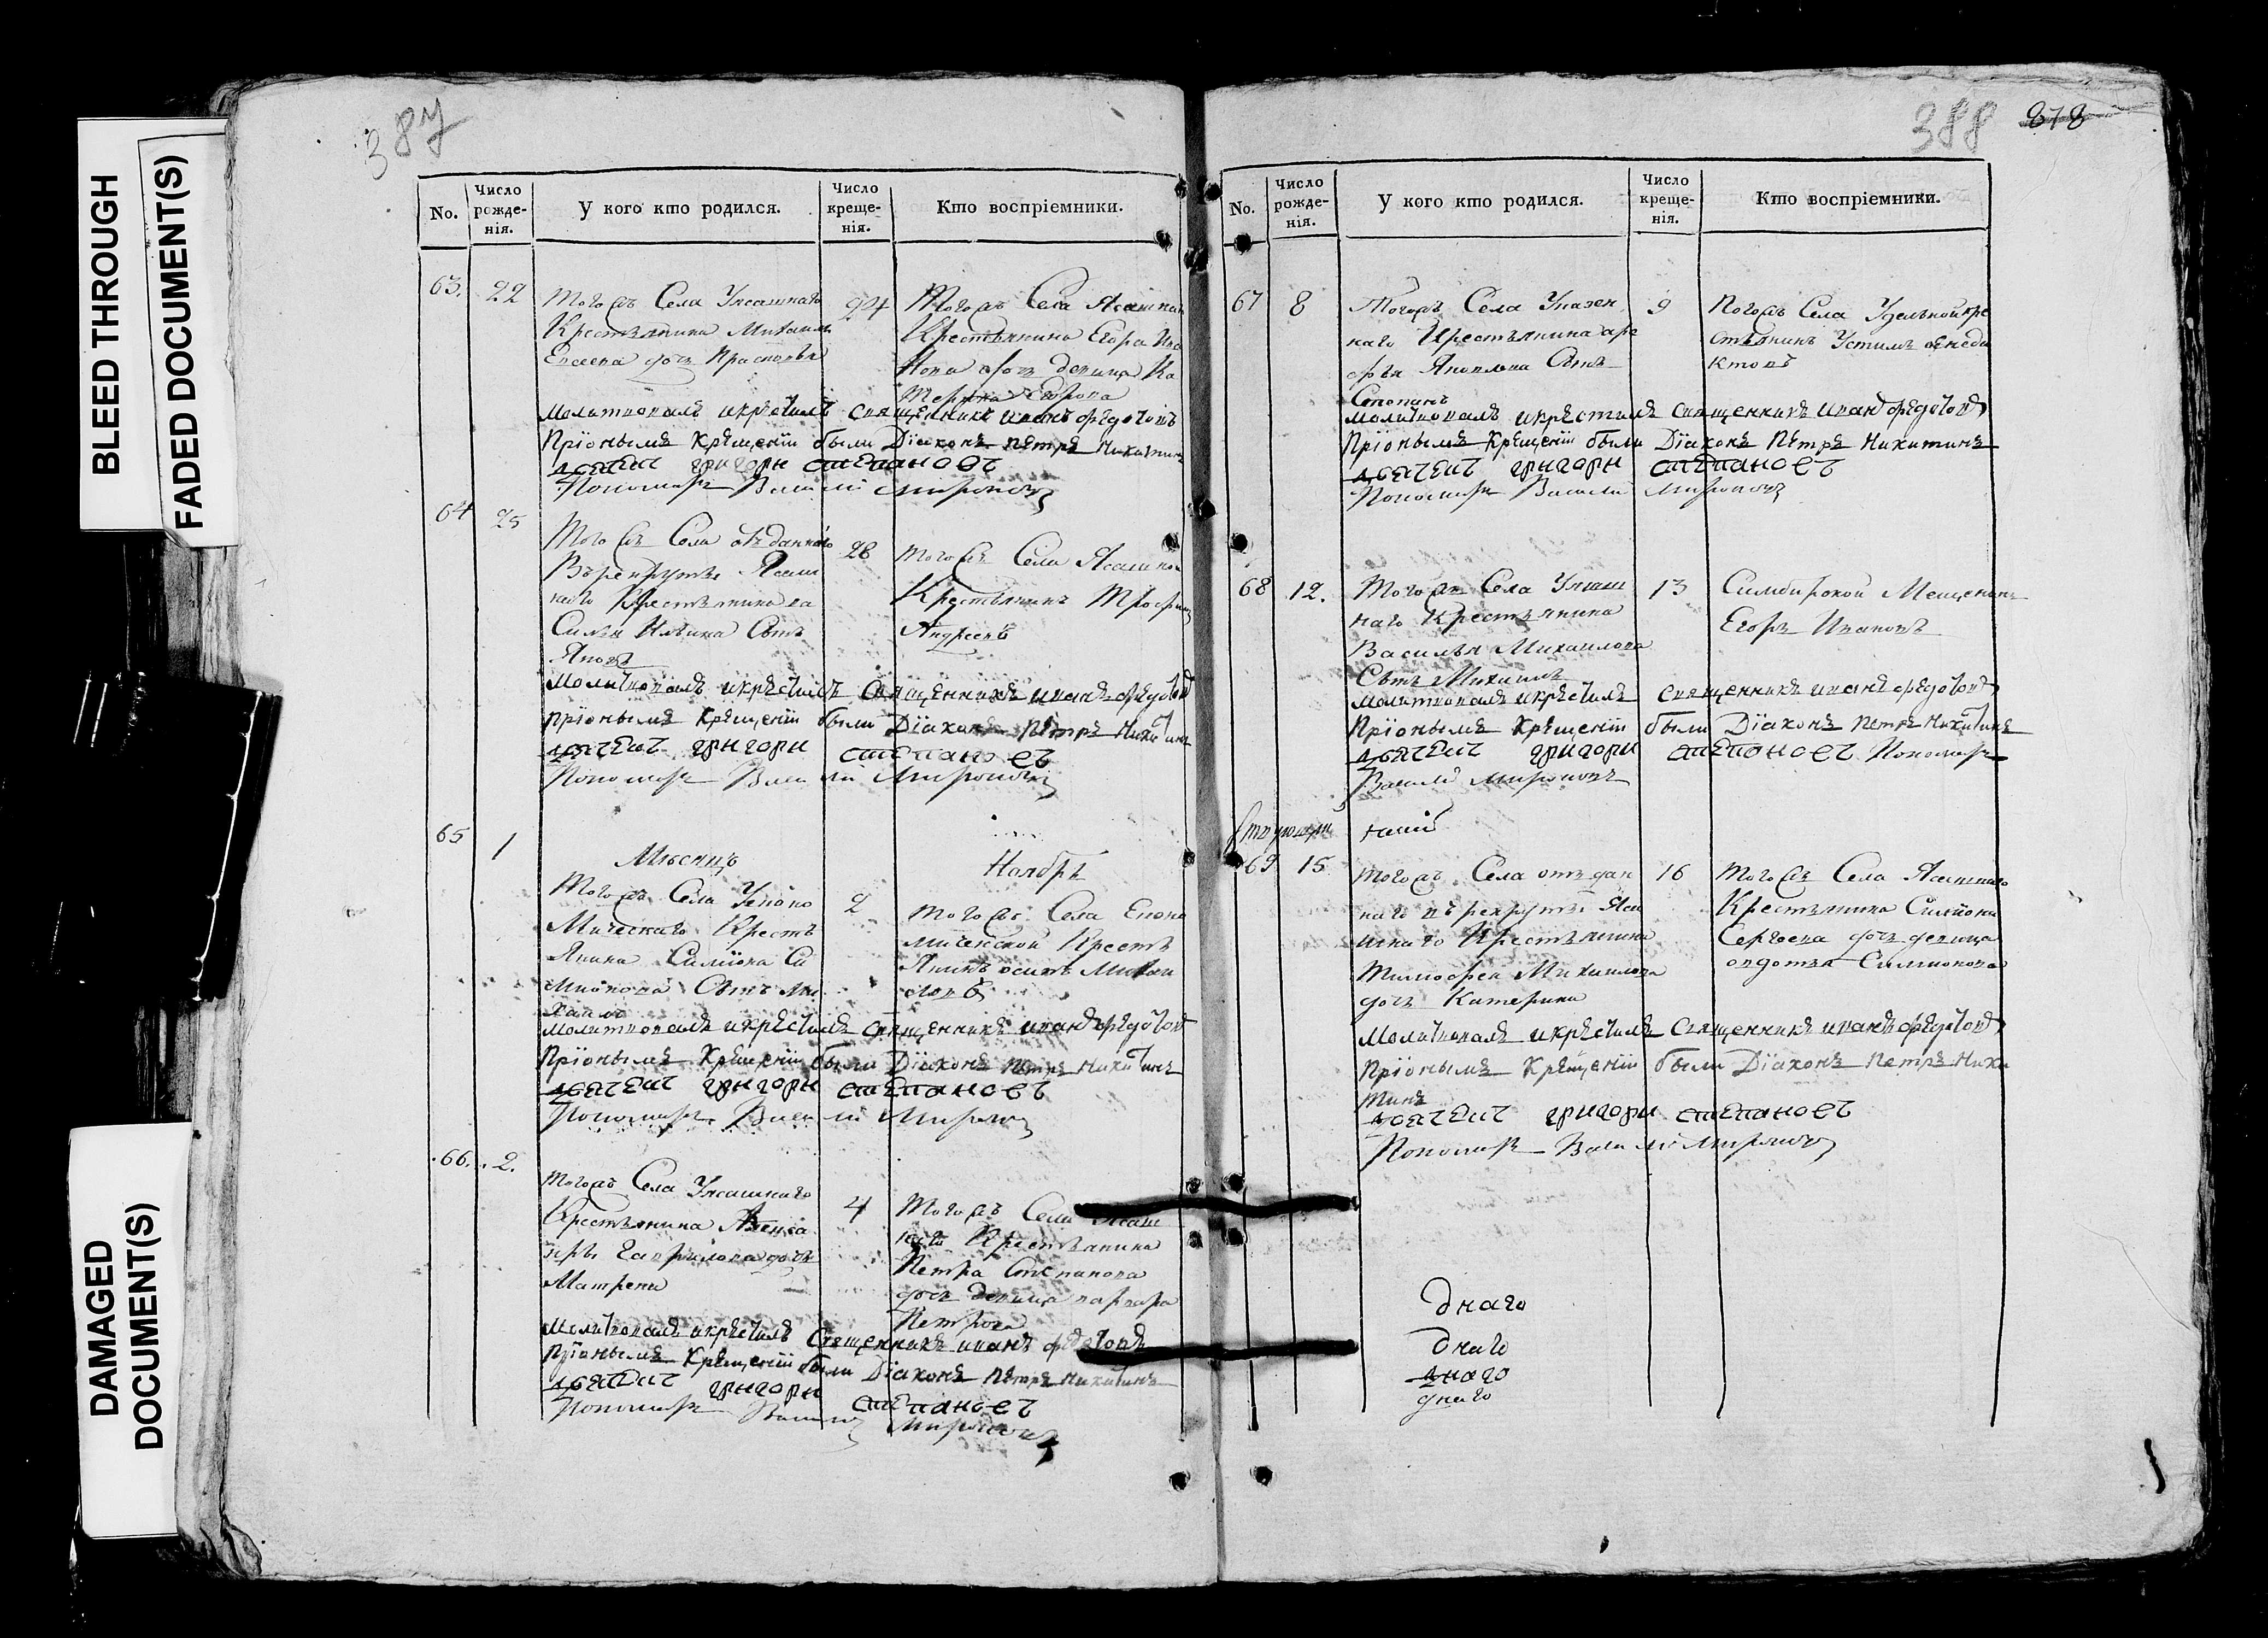 BLEED THROUGH
FADED DOCUMENT(S)
DAMAGED
DOCUMENT(S)
387
No.
Число рожде-нія.
У кого кто родился.
Число креще-нія.
Кто воспріемники.
63. 22
Тогожъ Села Уясашнаго
Крестьянина Михаила
Елисеева дочь Прасковья
24
Тогожъ Села Ясашнаго
Крестьянина Егора Ива
нова дочь девица Ка
терина Егорова
Молитвовалъ икрѣстилъ священникъ иванъ федотовъ
Пріонымъ Крѣщеніи были Діаконъ Пѣтръ Никитинъ
дьячекъ григори степановъ
Пономарь Василіи Мироновъ
64 25
Тогожъ Села отъданнаго
Върекруты Ясаш
наго Крестьянина ва
Силья Ильина Сынъ
Яковъ
26
Тогожъ Села Ясашной
Крестьянинъ Трофимъ
Андреевъ
Молитвовалъ икрѣстилъ Священникъ иванъ федотовъ
Пріонымъ Крѣщеніи были Діаконъ Пѣтръ Никитинъ
дьячекъ григори степановъ
Пономарь Василіи Мироновъ
65 1
Мѣсяцъ Ноябрь
Тогожъ Села Уеконо
Мическаго Кресть
Янина Симіона Си
мионова Сынъ Ми
хаило
2
Тогожъ Села Еконо
мической Кресть
Янинъ осипъ Михаи
ловъ
Молитвовалъ икрѣстилъ священникъ иванъ федотовъ
Пріонымъ Крѣщеніи были Діаконъ Пѣтръ Никитинъ
дьячекъ григори степановъ
Пономарь Василіи Мироновъ
66. 2.
Тогожъ Села Уясашнаго
Крестьянина Алекса
ндръ Гаврилова дочь
Матрена
4
Тогожъ Села Ясаш
наго Крестьянина
Петра Степанова
дочь девица варвара
Петрова
Молитвовалъ икрѣстилъ Священникъ иванъ федотовъ
Пріонымъ Крѣщеніи были Діаконъ Пѣтръ Никитинъ
дьячекъ григори степановъ
Пономарь Василіи Мироновъ
388 378
No.
Число рожде-нія.
У кого кто родился.
Число креще-нія.
Кто воспріемники.
67 8
Тогожъ Села Указен
наго Крестьянина
Яковлева Сынъ
Степанъ
9
Тогожъ Села Удельной кре
стьянинъ Устимъ
Молитвовалъ икрѣстилъ священникъ иванъ федотовъ
Пріонымъ Крѣщеніи были Діаконъ Пѣтръ Никитинъ
дьячекъ григори степановъ
Пономарь Василіи Мироновъ
68 12.
Тогожъ Села Уясаш
наго Крестьянина
Василья Михаилова
Сынъ Михаилъ
13
Симбирской Мещенинъ
Егоръ Ивановъ
Молитвовалъ икрѣстилъ священникъ иванъ федотовъ
Пріонымъ Крѣщеніи были Діаконъ Пѣтръ Никитинъ
дьячекъ григори степановъ Пономарь
Василіи Мироновъ
69 15
Тогожъ Села отъдан
наго върекруты Яса
шнаго Крестьянина
Тимофея Михаилова
дочь Катерина
16
Тогожъ Села Ясашнаго
Крестьянина Симіона
Сергеева дочь девица
овдотья Симионова
Молитвовалъ икрѣстилъ Священникъ иванъ федотовъ
Пріонымъ Крѣщеніи были Діаконъ Пѣтръ Ники
тинъ
дьячекъ григори степановъ
Пономарь Василіи Мироновъ
Днаго
Днаго
днаго
днаго